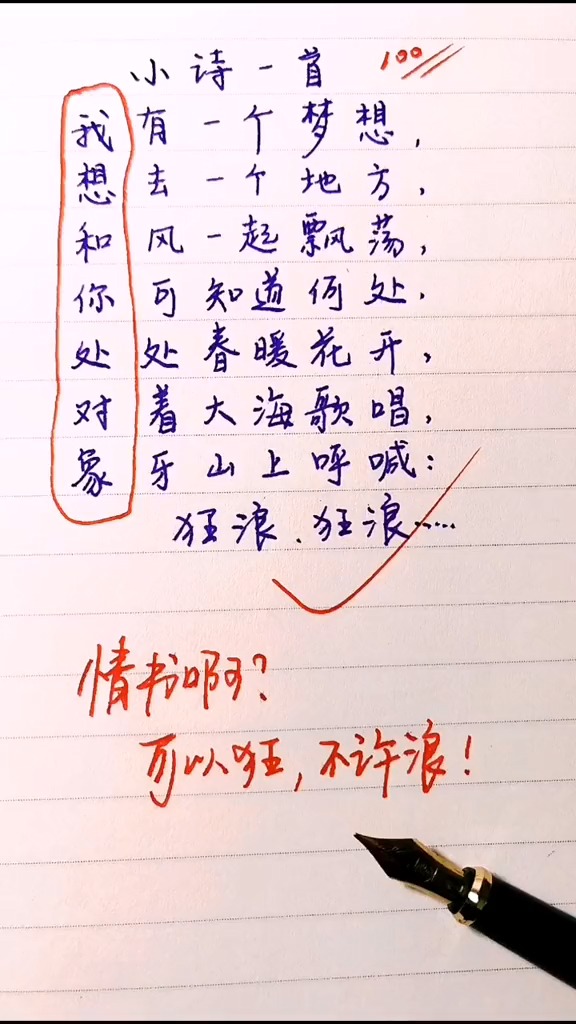 小诗一首
100
我有一个梦想,
想去一个地方,
和风一起飘荡,
你可知道何处,
处处春暖花开,
对着大海歌唱,
象牙山上呼喊:
狂浪、狂浪……
情书啊?
可以狂,不许浪!